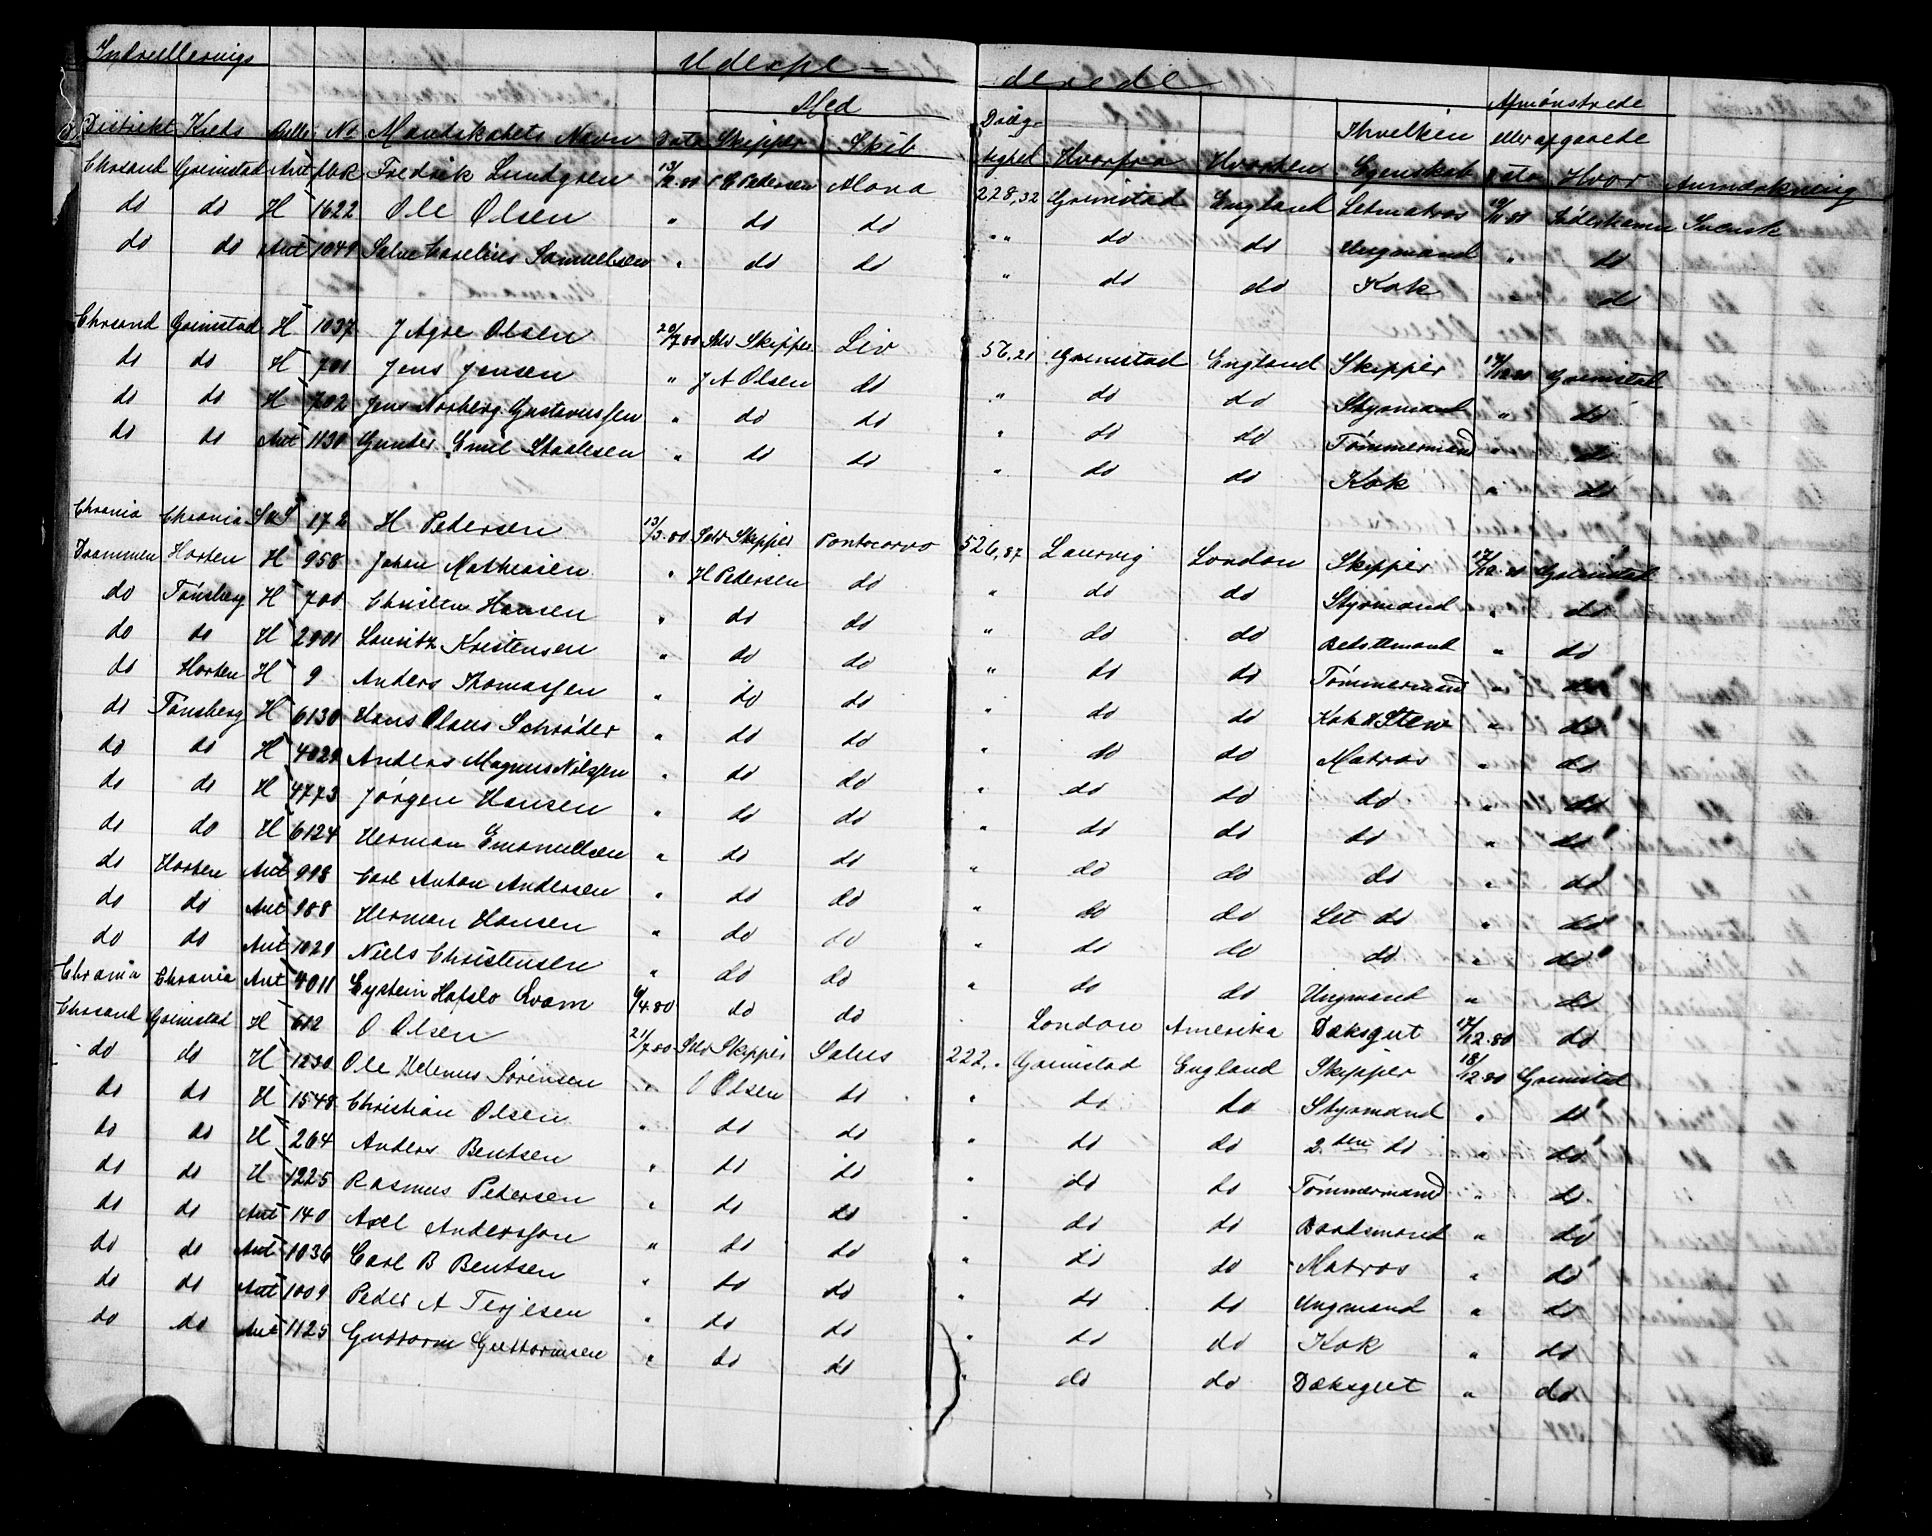 Indrullerings Udexpe- derede Afmønstrede
Med Dræg- Ihvelken eller afgaaede
Distrikt Kreds Rulle No Mandskabets Navn Dato Skipper Skib tighed Hvorfra Hvorhen Egenskab Dato Hvor Anmærkning
Chrsand Grimstad Ant Fredrik Lundgren P C Petersen Mona 228,32 Grimstad England Letmatros Svensk
do do H 1622 Ole Olsen " do do " " do do Ungmand " do
do do Ant 1049 Salve Samuelsen " do do " do do Kok " do
Chrsand Grimstad H 1037 J Agre Olsen 20/7.80 Selv Skipper Liv 56,21 Grimstad England Skipper Grimstad
do do H 701 Jens Jensen " J A Olsen do " do do Styrmand " do
do do H 702 Jens Norberg Gustavussen " do do " do do Tømmermand " do
do do Ant 1130 Gunder Emil Staalesen " do do " do do Kok " do
Chrania Chrania SuS 172 H Petersen 13/3.80 Selv Skipper Pontecorvo 526,87 Laurvig London Skipper 17/12.80 Grimstad
Drammen Horten H 958 Johan Mathiasen " H Petersen do " do do Styrmand " do
do Tønsberg H 700 Christen Hansen " do do " do do " do
do do H 2901 Lauritz Kristensen " do do " do do Tømmermand " do
do Horten H 9 Anders Thomassen " do do " do do Kok & Stew " do
do Tønsberg H 6130 Hans Olaus Schrøder " do do " do do Matros " do
do do H 4029 Anders Magnus Nilssen " do do " do do do " do
do do H 4773 Jørgen Hansen " do do " do do do " do
do do H 6124 Herman Emanuelsen " do do " do do do " do
do Horten Ant 998 Carl Anton Andersen " do do " do do Let do " do
do do Ant 988 Herman Hansen " do do " do do do " do
do do Ant 1029 Niels Christensen " do do " do do Ungmand " do
Chrania Chrania Ant 4011 Eystein Hafslo Qvam 6/4.80 do do London Amerika Dæksgut 17/12.80 do
Chrsand Grimstad H 612 O Olsen 21/7.80 Selv Skipper Salus 222,. Grimstad England Skipper 18/12.80 Grimstad
do do H 1230 Ole Helenus Sørensen " O Olsen do " do do Styrmand " do
do do H 1548 Christian Olsen " do do " do do 2.den do " do
do do H 264 Anders Bentsen " do do " do do Tømmermand " do
do do H 1225 Rasmus Petersen " do do " do do Baadsmand " do
do do Ant 140 Axel Andersson " do do " do do Matros " do
do do Ant 1036 Carl B Bentsen " do do " do do Ungmand " do
do do Ant 1009 Peder A Terjesen " do do " do do Kok " do
do do Ant 1125 Guttorm Guttormsen " do do " do do Dæksgut " do